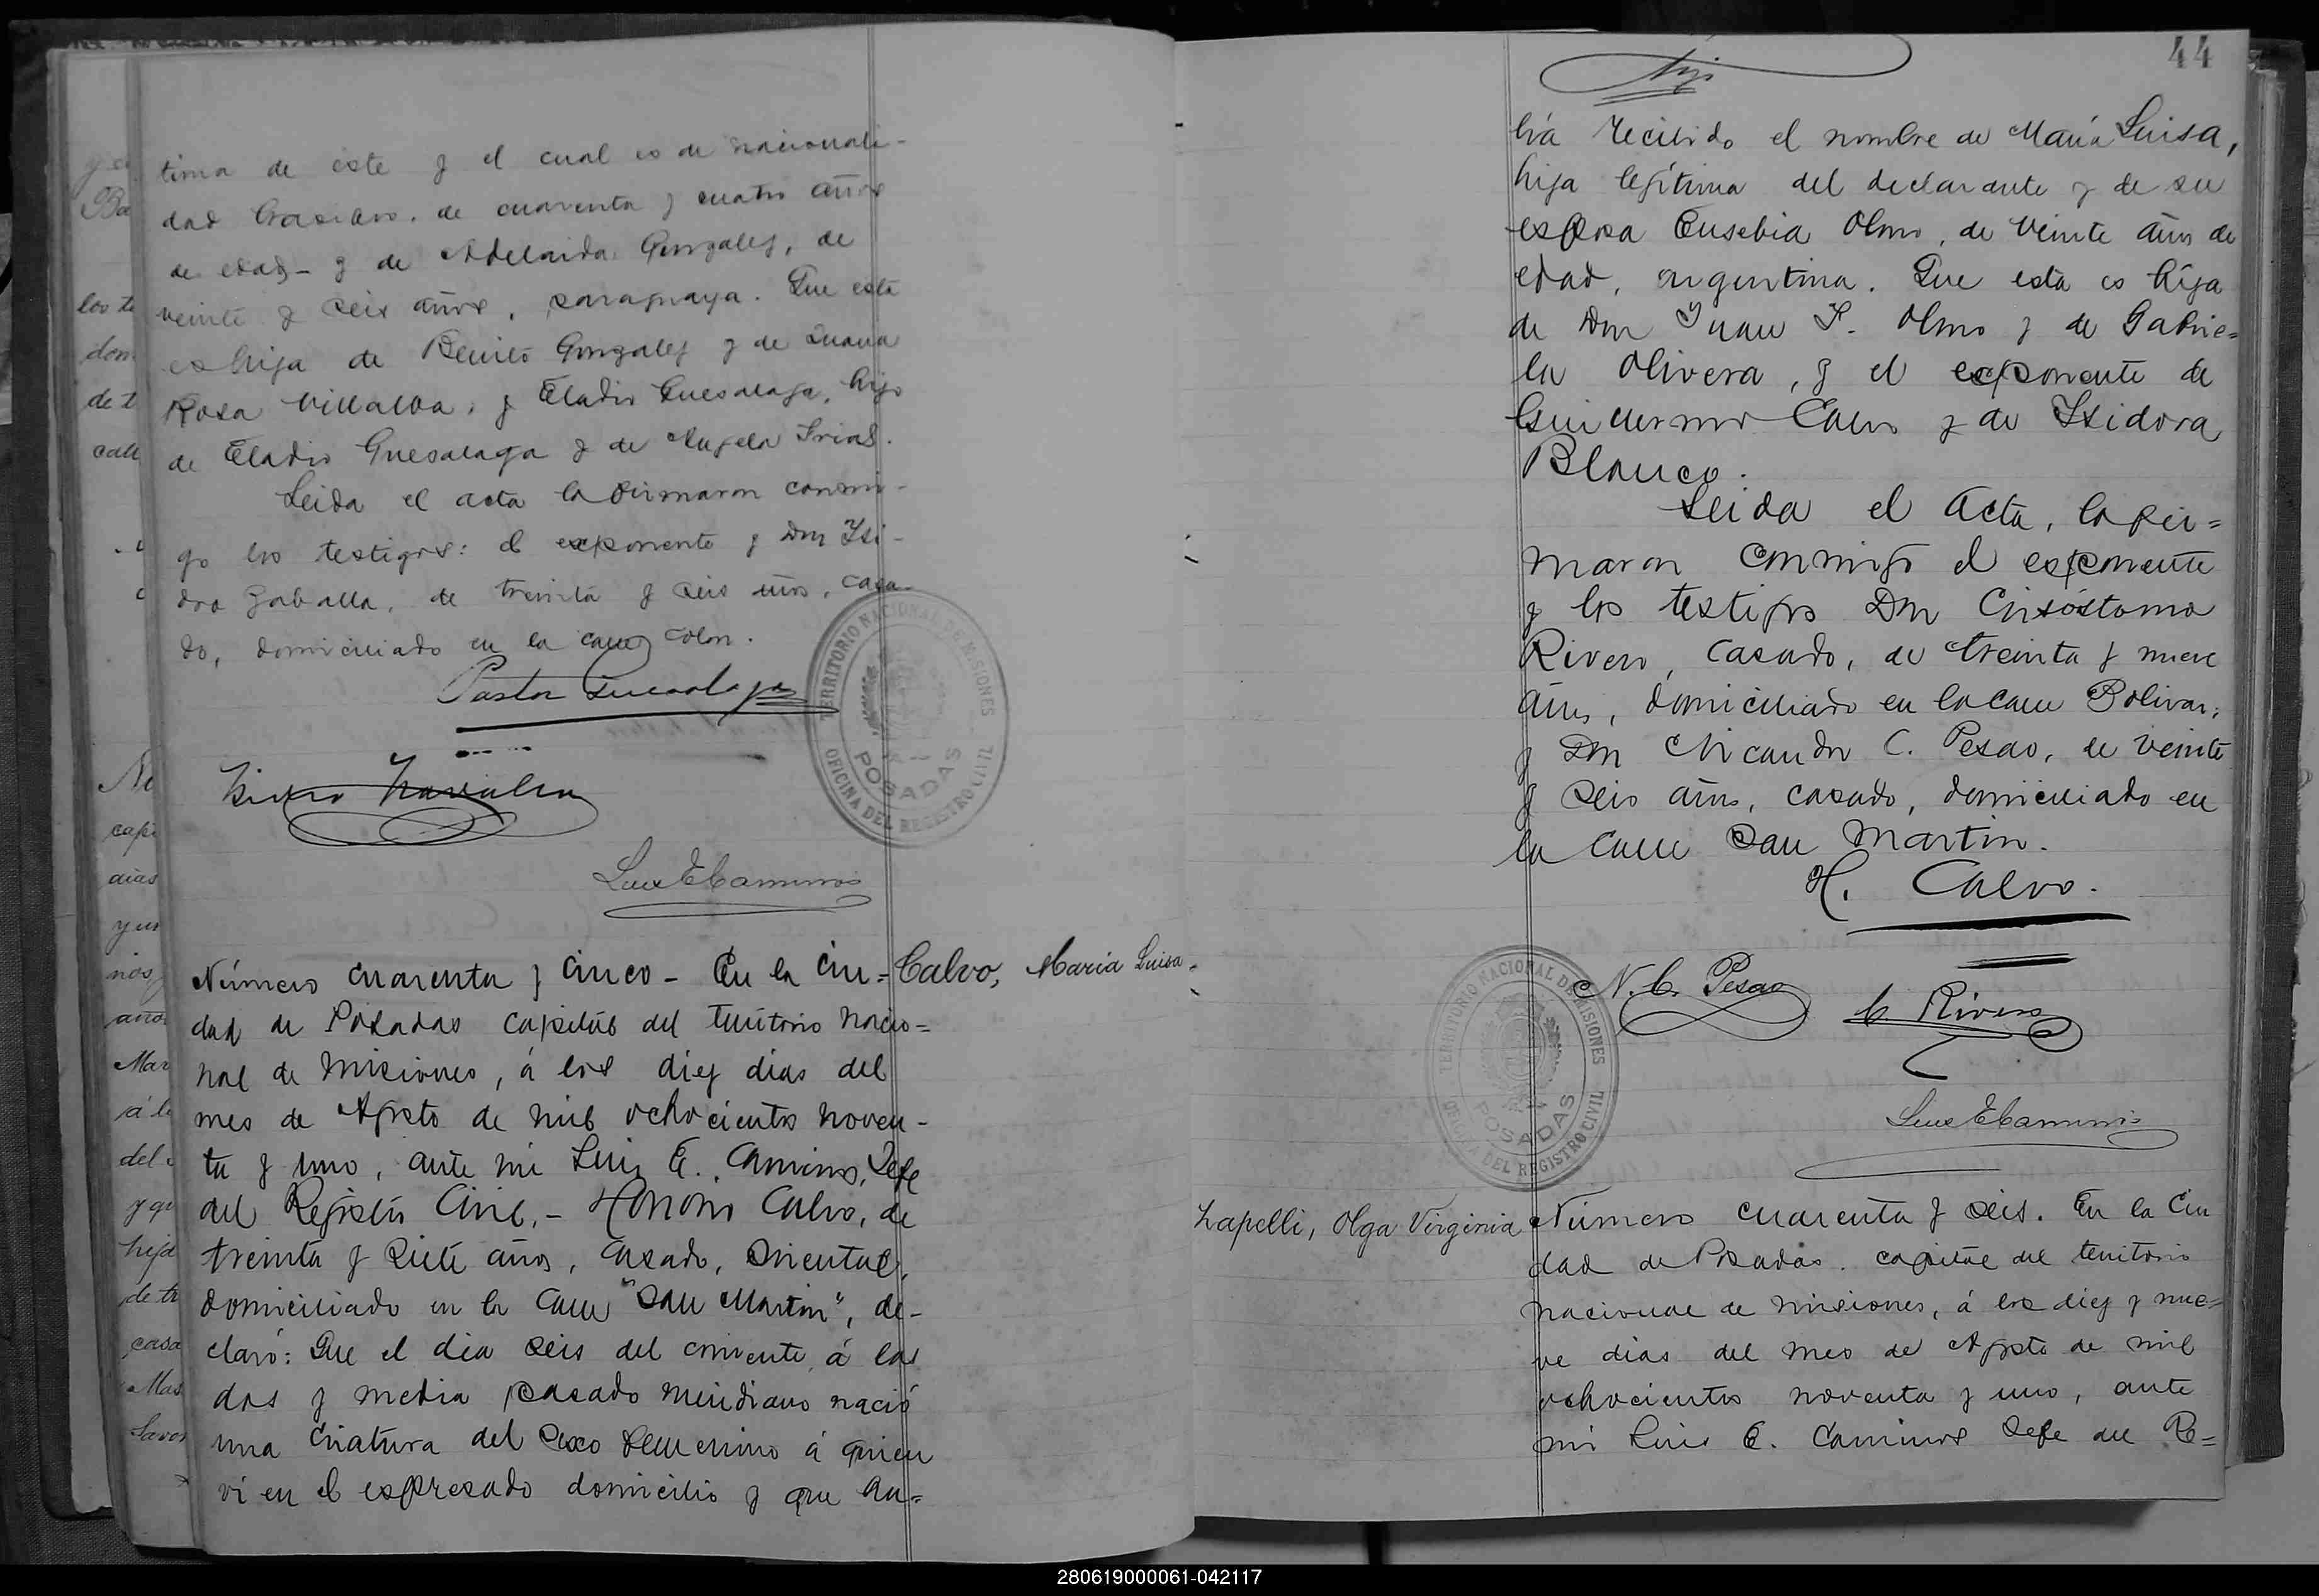 tima de este y el cual es de nacionali-
dad de cuarenta y cuatro años
de edad - y de Adelaida Gonzalez, de
veinte y seis años, paraguaya. Que esta
es hija de Benito Gonzalez y de Juana
Rosa Villalba, y Eladio Guesalaga, hijo
de Eladio Guesalaga y de Angela Frias.
Leida el acta la firmaron conmi-
go los testigos: el exponente y Don Isi-
dro Zaballa, de treinta y seis años, casa-
do, domiciliado en la calle Colon.
Pastor Guesalaga
Isidro
TERRITORIO NACIONAL DE MISIONES
POSADAS
OFICINA DEL REGISTRO CIVIL
Luis E Caminos
Calvo, Maria Luisa
Número cuarenta y cinco - En la Ciu=
dad de Posadas capital del territorio nacio=
nal de Misiones, á los diez dias del
mes de Agosto de mil ochocientos noven-
ta y uno, ante mi Luis E. Caminos, Jefe
del Registro Civil, - Honorio Calvo, de
treinta y siete años, casado, oriental,
domiciliado en la calle "San Martin", de-
claró: Que el dia seis del corriente á las
dos y media pasado meridiano nació
una criatura del sexo femenino á quien
vi en el expresado domicilio y que ha=
44
hijo
bía recibido el nombre de María Luisa,
hija legítima del declarante y de su
esposa Eusebia Olmo, de veinte años de
edad, argentina. Que esta es hija
de Don Juan Olmo y de Gabrie=
la Olivera, y el exponente de
Guillermo Calvo y de Isidora
Blanco.
Leida el acta, la fir=
maron conmigo el exponente
y los testigos Don Crisóstomo
Rivero, casado, de treinta y nueve
años, domiciliado en la calle Bolivar,
y Don Nicandro C. Pesao, de veinte
y seis años, casado, domiciliado en
la calle San Martin.
H. Calvo.
N. C. Pesao
C. Rivero
TERRITORIO NACIONAL DE MISIONES
POSADAS
OFICINA DEL REGISTRO CIVIL
Luis E Caminos
Zapelli, Olga Virginia
Número cuarenta y seis. En la Ciu
dad de Posadas. capital del territorio
nacional de Misiones, á los diez y nue=
ve dias del mes de Agosto de mil
ochocientos noventa y uno, ante
mi Luis E. Caminos Jefe del Re=
280619000061-042117